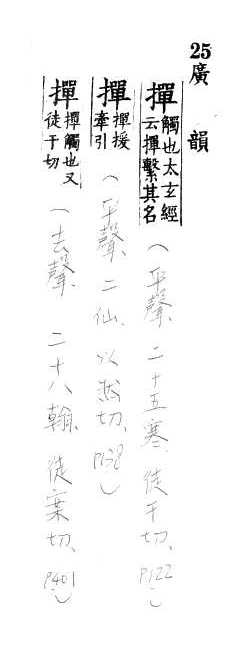 25廣韻
撣觸也太玄經
云撣繫其名
(平聲、二十五寒、徒干切、P.122)
撣撣援
牽引
(平聲、二仙、以然切、P.138)
撣撣觸也又
徒干切
(去聲、二十八翰、徒案切、P401)